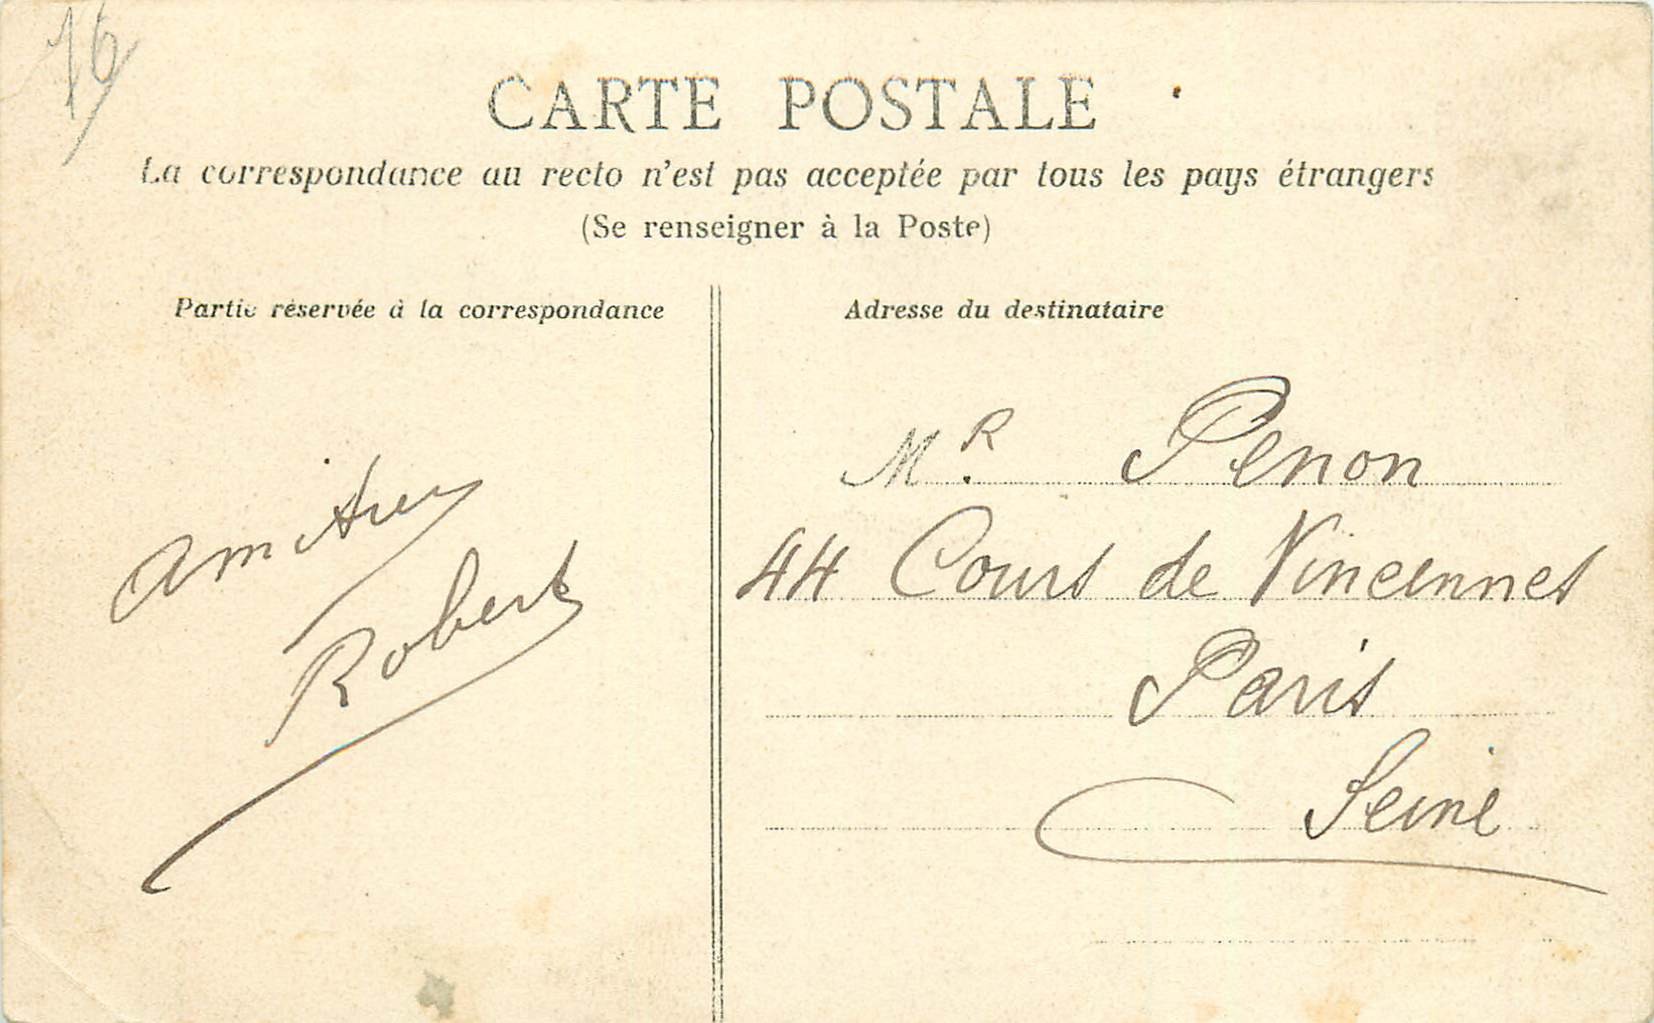 16
CARTE POSTALE
La correspondance au recto n'est pas acceptée par tous les pays étrangers
(Se renseigner à la Poste)
Partie réservée à la correspondance
amitiés
Robert
Adresse du destinataire
MR. Penon
44 Cours de Vincennes
Paris
Seine